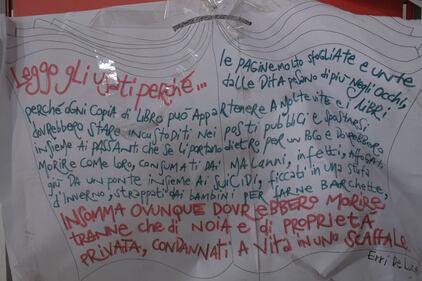 Leggo gli usati perché...
le PAGINE MOLTO SFOGLIATE E UNTE
DALLE DITA PESANO DI PIÙ NEGLI OCCHI,
PERCHÉ OGNI COPIA DI LIBRO PUÒ APPARTENERE A MOLTE VITE E I LIBRI
DOVREBBERO STARE INCUSTODITI NEI POSTI PUBBLICI E SPOSTARSI
INSIEME AI PASSANTI CHE SE LI PORTANO DIETRO PER UN POCO E DOVREBBERO
MORIRE COME LORO, CONSUMATI DAI MALANNI, INFETTI, AFFOGATI
GIÙ DA UN PONTE INSIEME AI SUICIDI, FICCATI IN UNA STUFA
D'INVERNO, STRAPPATI DAI BAMBINI PER FARNE BARCHETTE,
INSOMMA OVUNQUE DOVREBBERO MORIRE
TRANNE CHE DI NOIA E DI PROPRIETÀ
PRIVATA, CONDANNATI A VITA IN UNO SCAFFALE.
Erri De Luca